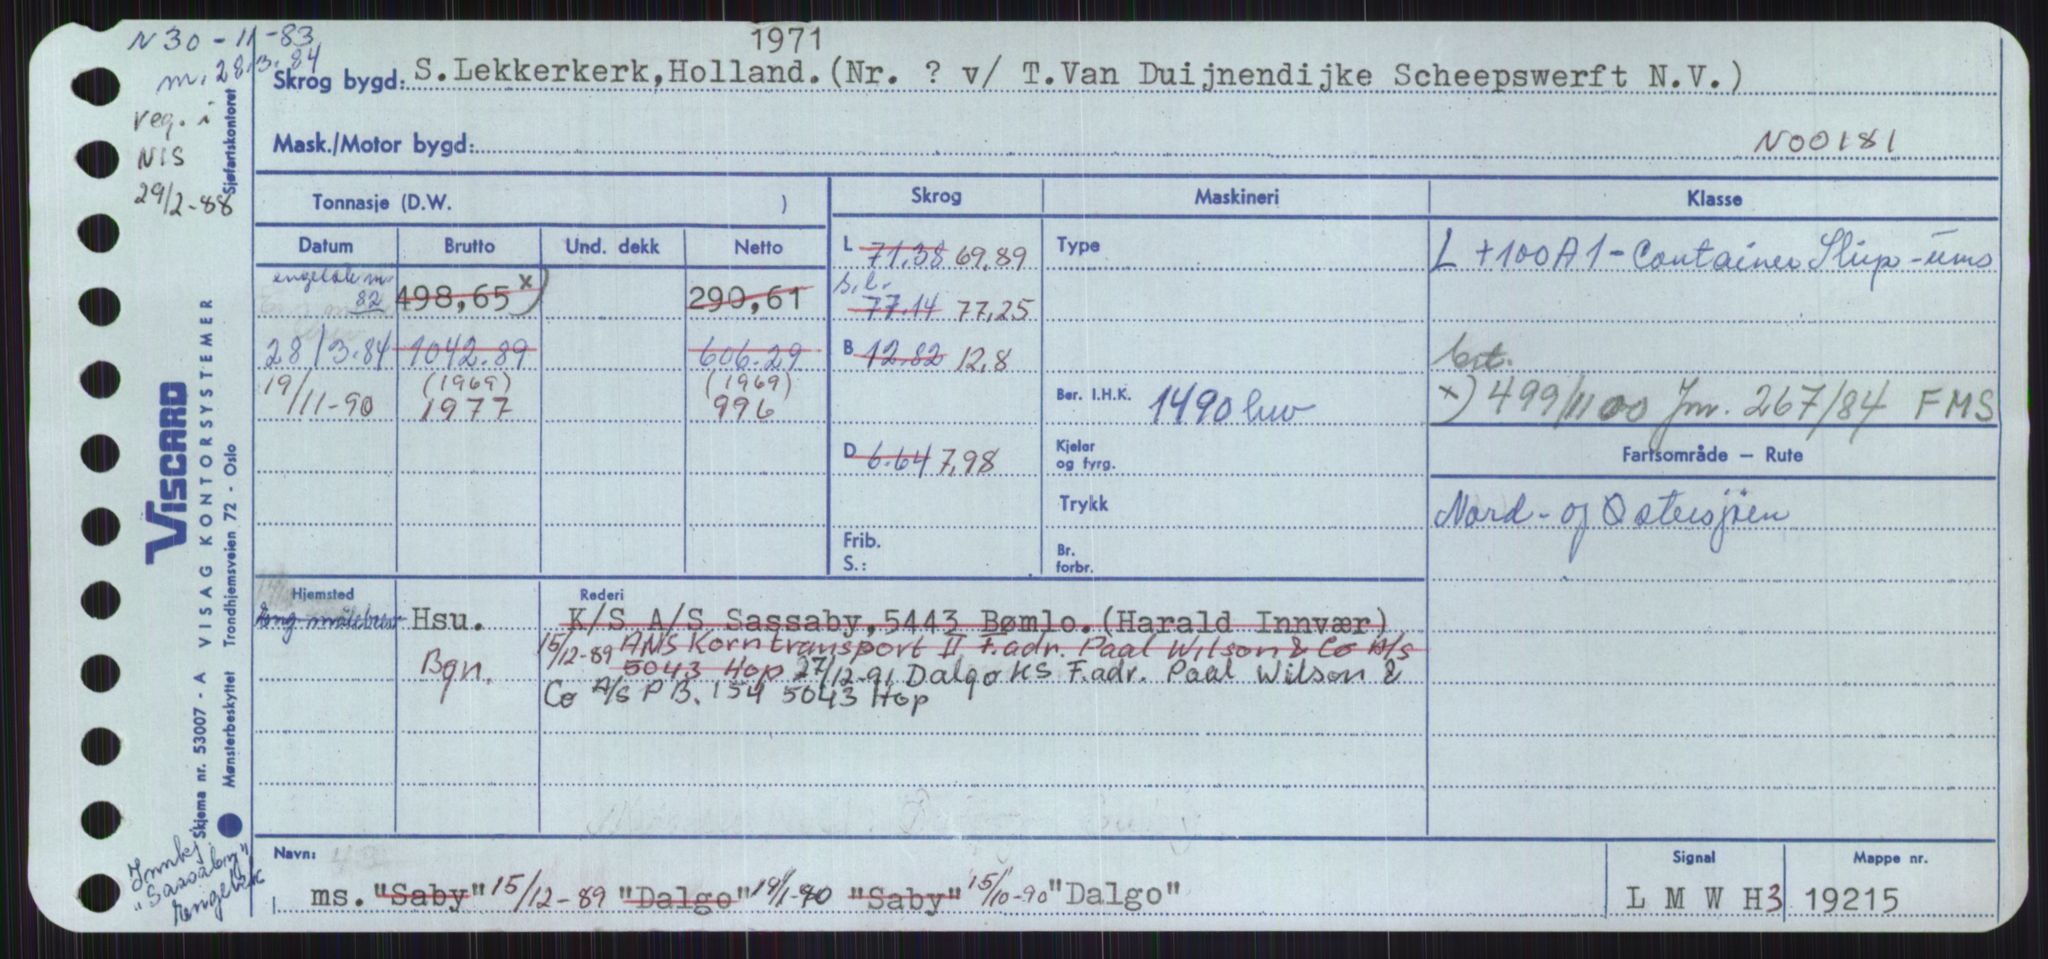 N 30-11-83
m. 28.3.84
reg. i
NIS
29/2-88
1971
Skrog bygd: S.Lekkerkerk,Holland.(Nr. ? v/ T.Van Duijnendijke Scheepswerft N.V.)
Mask./Motor bygd:
N00181
Tonnasje (D.W. )
Skrog Maskineri Klasse
Datum Brutto Und. dekk Netto
82 498,65 x) 290,61
28/3.84 1042.89 606.29
(1969) (1969)
19/11-90 1977 996
L 71.38 69.89
77.14 77,25
B 12.82 12,8
D 6.64 7,98
Frib.
S.:
Type
Ber. I.H.K. 1490 hw
Kjeler
og fyrg.
Trykk
Br.
forbr.
L +100A1-Container Ship-ums
brt.
x) 499/1100 Jnr. 267/84 FMS
Fartsområde — Rute
Nord- og Østersjøen
Hjemsted Rederi
Eng målebrev Hsu. K/S A/S Sassaby,5443 Bømlo.(Harald Innvær)
15/12-89 ANS Korntransport II F.adr. Paal Wilson & Co A/s
Bgn. 5043 Hop 27/12-91 Dalgo KS F.adr. Paal Wilson &
Co A/s P B. 154 5043 Hop
Navn:
ms. "Saby" 15/12-89 "Dalgo" 19/1-90 "Saby" 15/10-90 "Dalgo"
Signal
L M W H3
Mappe nr.
19215
Sjøfartskontoret
VISCARD
VISAG KONTORSYSTEMER
Trondhjemsveien 72 - Oslo
Skjema nr. 53007 - A
Mønsterbeskyttet
Innkj.
"Sassaby"